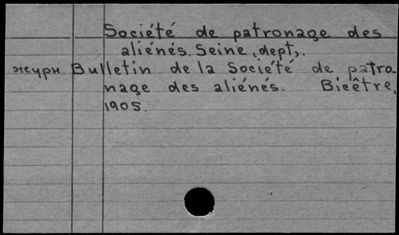 Société de patronage des
aliénés. Seine, dept,.
журн Bulletin de la Société de patro-
nage des aliénés. Bicêtre,
1905.